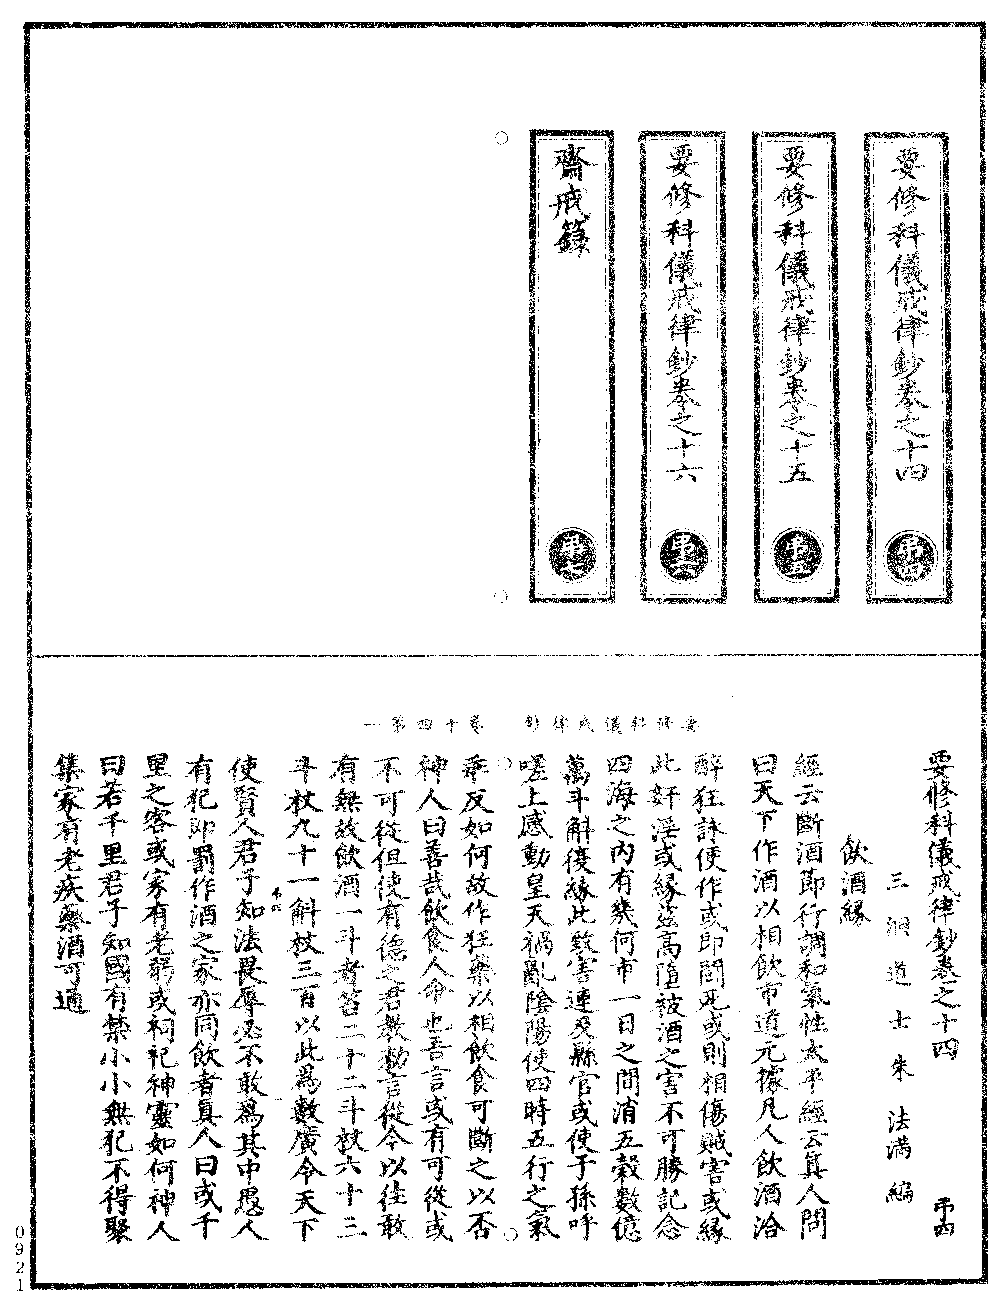 要修科儀戒律鈔卷之十四
弔四
要修科儀戒律鈔卷之十五
弔五
要修科儀戒律鈔卷之十六
弔六
齋戒籙
弔七
要修科儀戒律鈔 卷十四第一
要修科儀戒律鈔卷之十四 弔四
三洞道士朱法滿編
飲酒緣
經云斷酒即行調和氣性太平經云真人問
曰天下作酒以相飲市道元據凡人飲酒洽
醉狂詠便作或即鬪死或則相傷賊害或緣
此奸淫或緣茲高墮被酒之害不可勝記念
四海之內有幾何市一日之間消五穀數億
萬斗斛復緣此致害連及縣官或使子孫呼
嗟上感動皇天禍亂陰陽使四時五行之氣
乖反如何故作狂藥以相飲食可斷之以否
神人曰善哉飲食人命也吾言或有可從或
不可從但使有德之君教勑言從今以往敢
有無故飲酒一斗者笞二十二斗杖六十三
斗杖九十一斛杖三百以此為數廣令天下
使賢人君子知法畏辱必不敢為其中愚人
有犯即罰作酒之家亦同飲者真人曰或千
里之客或家有老弱或祠祀神靈如何神人
曰若千里君子知國有禁小小無犯不得聚
集家有老疾藥酒可通
0921